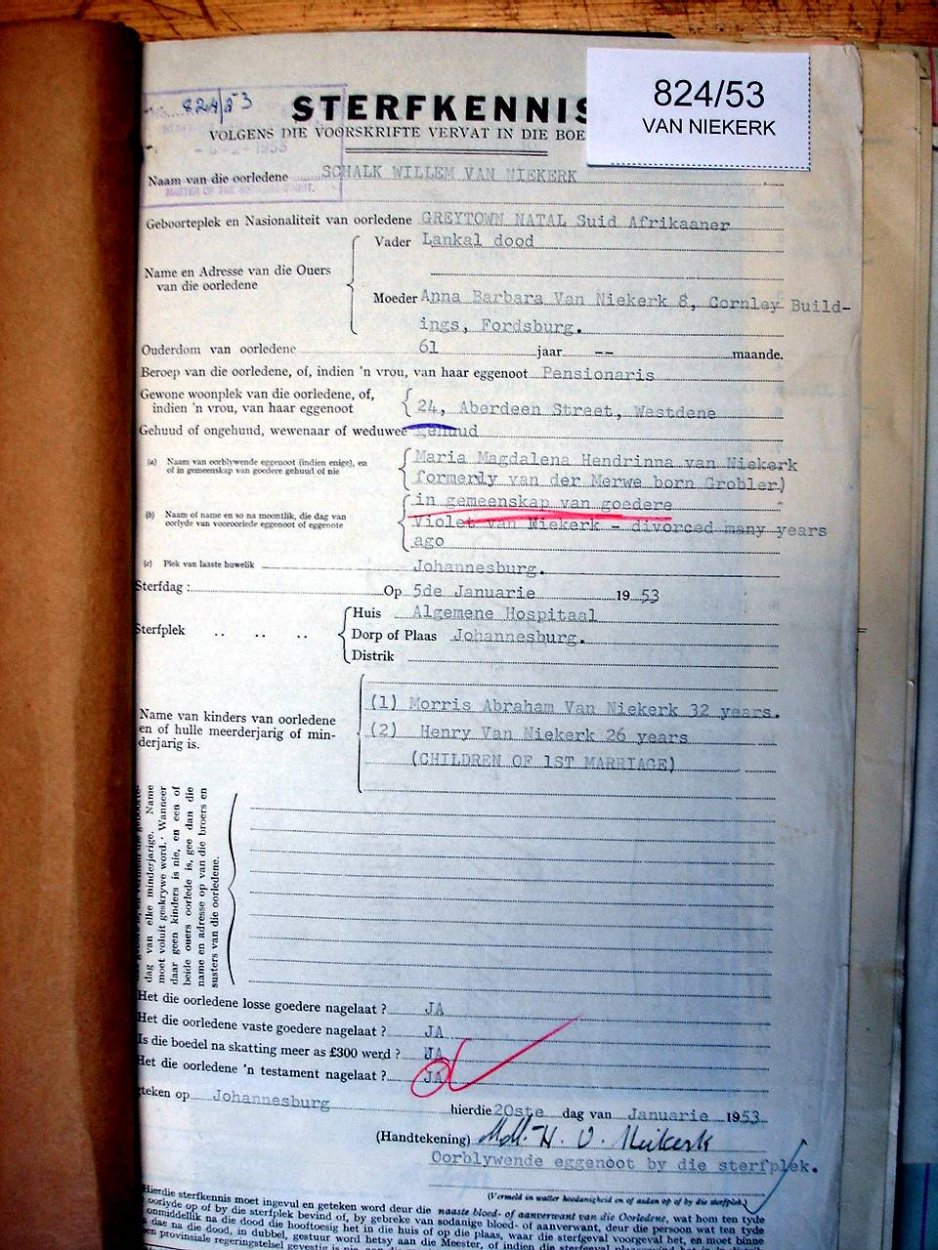 824/53
VAN NIEKERK
824/53
STERFKENNIS
VOLGENS DIE VOORSKRIFTE VERVAT IN DIE BOE
Naam van die oorledene SCHALK WILLEM VAN NIEKERK
MASTER OF THE SUPREME COURT.
Geboorteplek en Nasionaliteit van oorledene GREYTOWN NATAL Suid Afrikaaner
Name en Adresse van die Ouers van die oorledene
Vader Lankal dood
Moeder Anna Barbara Van Niekerk 8, Cornley Build-
ings, Fordsburg.
Ouderdom van oorledene 61 jaar -- maande.
Beroep van die oorledene, of, indien 'n vrou, van haar eggenoot Pensionaris
Gewone woonplek van die oorledene, of,
indien 'n vrou, van haar eggenoot 24, Aberdeen Street, Westdene
Gehuud of ongehuud, wewenaar of weduwee gehuud
(a) Naam van oorblywende eggenoot (indien enige), en
of in gemeenskap van goedere gehuud of nie
Maria Magdalena Hendrinna van Niekerk
formerly van der Merwe born Grobler)
in gemeenskap van goedere
(b) Naam of name en so na moontlik, die dag van
oorlyde van vooroorlede eggenoot of eggenote
Violet van Niekerk - divorced many years
ago
(c) Plek van laaste huwelik Johannesburg.
Sterfdag : Op 5de Januarie 1953
Sterfplek .. .. ..
Huis Algemene Hospitaal
Dorp of Plaas Johannesburg.
Distrik
Name van kinders van oorledene
en of hulle meerderjarig of min-
derjarig is.
(1) Morris Abraham Van Niekerk 32 years.
(2) Henry Van Niekerk 26 years
(CHILDREN OF 1ST MARRIAGE)
dag van elke minderjarige. Name
moet voluit geskrywe word. Wanneer
daar geen kinders is nie, en een of
beide ouers oorlede is, gee dan die
name en adresse op van die broers en
susters van die oorledene.
Het die oorledene losse goedere nagelaat ? JA
Het die oorledene vaste goedere nagelaat ? JA
Is die boedel na skatting meer as £300 werd ? JA
Het die oorledene 'n testament nagelaat ? JA
eteken op Johannesburg hierdie 20ste dag van Januarie 1953
(Handtekening) M.M. H. V. Niekerk
Oorblywende eggenoot by die sterfplek.
(Vermeld in watter hoedanigheid en of aldan op of by die sterfplek)
Hierdie sterfkennis moet ingevul en geteken word deur die naaste bloed- of aanverwant van die Oorledene, wat hom ten tyde
oorlyde op of by die sterfplek bevind of, by gebreke van sodanige bloed- of aanverwant, deur die persoon wat ten tyde
onmiddellik na die dood die hooftoesig het in die huis of op die plaas, waar die sterfgeval voorgeval het, en moet binne
dae na die dood, in dubbel, gestuur word hetsy aan die Meester, of indien die sterfgeval